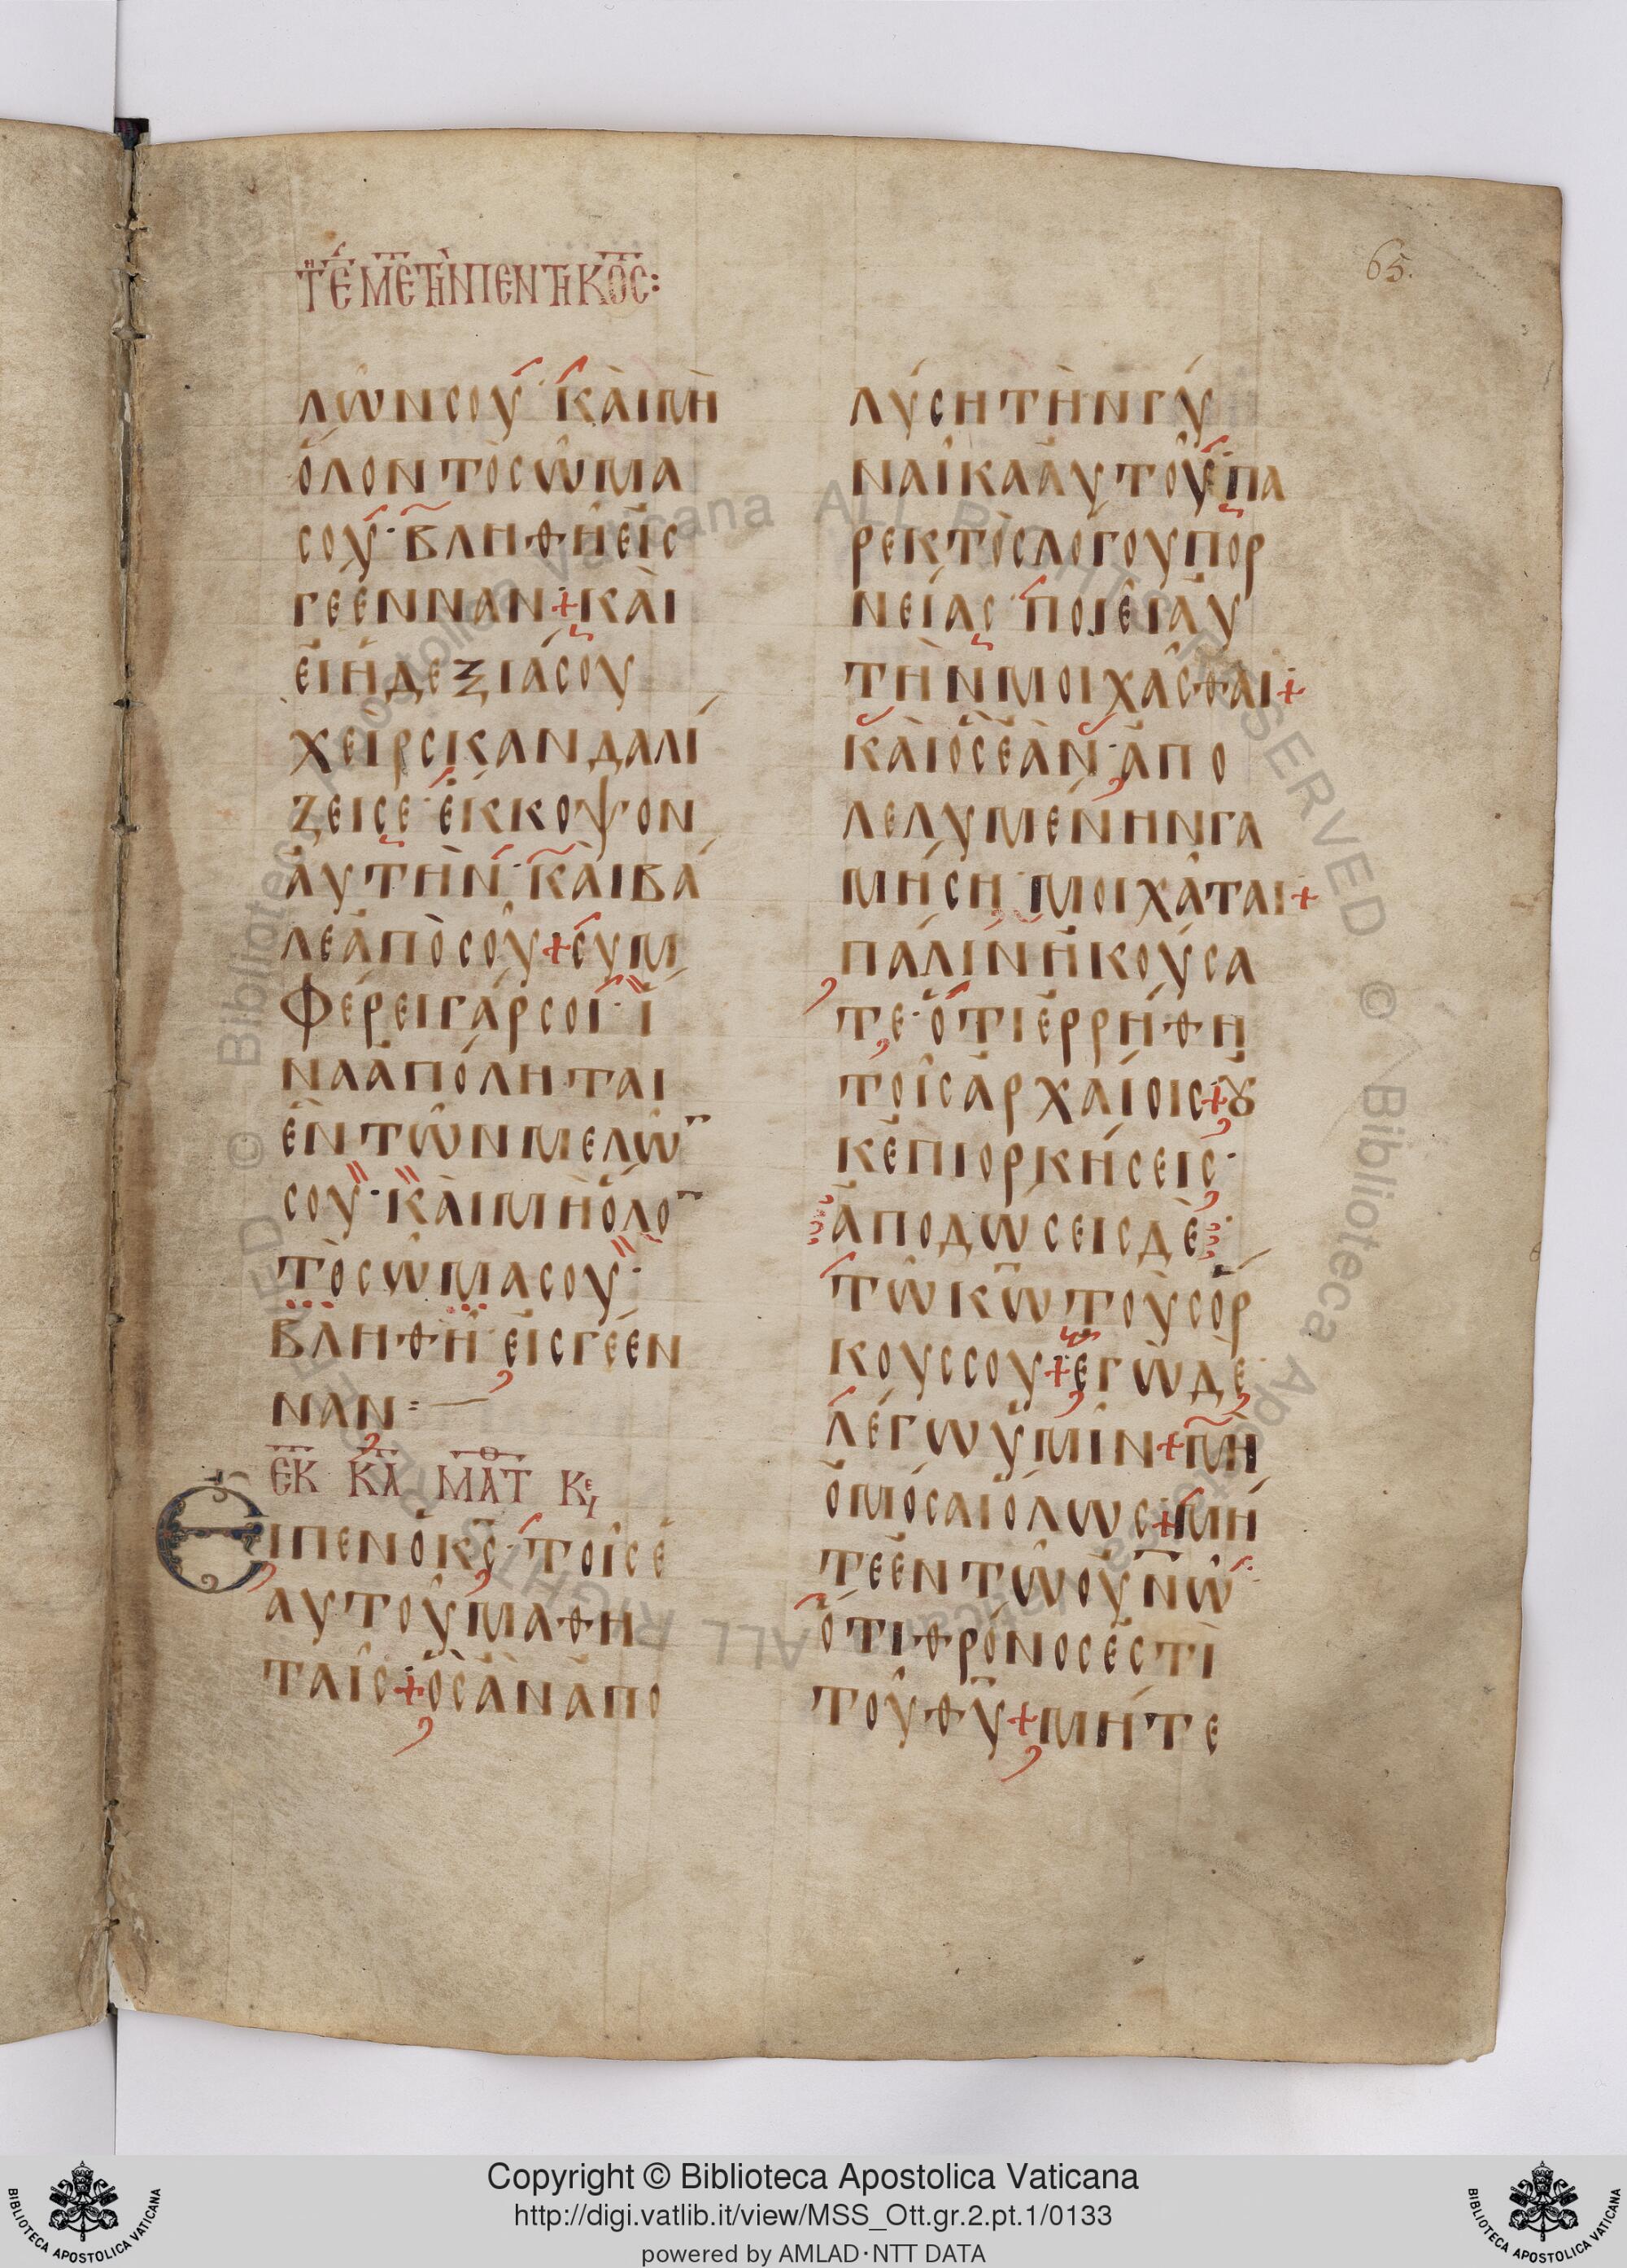 Τῌ Ε ΜΕΤ ΤῊΝ ΠΕΝΤΗΚΟΣ:
65.
λῶν σου· καὶ μὴ
ὅλον τὸ σῶμα
σου· βληθῆ εἰς
γέενναν + καὶ
εἰ ἡ δεξιά σου
χεὶρ σκανδαλί
ζει σε· ἔκκοψον
αὐτὴν· καὶ βά
λε ἀπὸ σοῦ + συμ
φέρει γάρ σοι· ἵ
να ἀπόληται
ἓν τῶν μελῶ̅
σου· καὶ μὴ ὅλο̅
τὸ σῶμα σου·
βληθῆ εἰς γέεν
ναν
ΕΚ ΚΑ ΜΑΤ ΚΕ
Εἶπεν ὁ κς̅· τοῖς ἑ
αυτοῦ μαθη
ταῖς + ὃς ἂν ἀπο
λύση τὴν γυ
ναῖκα αὐτοῦ· πα
ρεκτὸς λόγου πορ
νείας· ποιεῖ αὐ
τὴν μοιχᾶσθαι +
καὶ ὃς ἐὰν· ἀπο
λελυμένην γα
μήση· μοιχᾶται +
πάλιν ἠκούσα
τε· ὅτι ἐρρήθη
τοῖς ἀρχαίοις + ȣ
κ ἐπιορκήσεις·
ἀποδώσεις δὲ
τῶ κω̅ τοὺς ὅρ
κους σου + ἐγὼ δὲ
λέγω ὑμῖν + μὴ
ὀμόσαι ὅλως + μή
τε ἐν τῶ οὐνω̅·
ὅτι θρόνος ἐστὶ
τοῦ θυ̅ + μήτε
Copyright © Biblioteca Apostolica Vaticana
http://digi.vatlib.it/view/MSS_Ott.gr.2.pt.1/0133
powered by AMLAD·NTT DATA
BIBLIOTECA APOSTOLICA VATICANA
BIBLIOTECA APOSTOLICA VATICANA